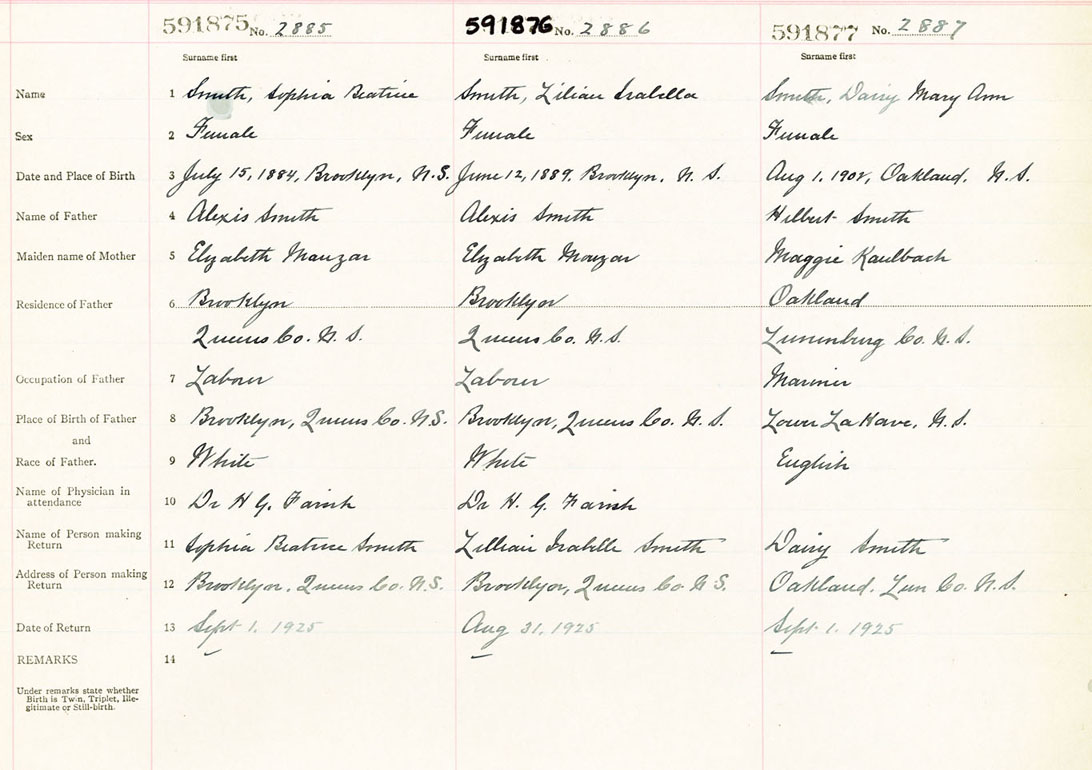 591875 No. 2885 591876 No. 2886 591877 No. 2887
Surname first Surname first Surname first
Name 1 Smith, Sophia Beatrice Smith, Lilian Isabella Smith, Daisy Mary Ann
Sex 2 Female Female Female
Date and Place of Birth 3 July 15, 1884, Brooklyn, N.S. June 12, 1889, Brooklyn, N.S. Aug 1, 1902, Oakland, N.S.
Name of Father 4 Alexis Smith Alexis Smith Hilbert Smith
Maiden name of Mother 5 Elizabeth Manzar Elizabeth Manzar Maggie Kaulbach
Residence of Father 6 Brooklyn Brooklyn Oakland
Queens Co. N.S. Queens Co. N.S. Lunenburg Co. N.S.
Occupation of Father 7 Labour Labour Mariner
Place of Birth of Father 8 Brooklyn, Queens Co. N.S. Brooklyn, Queens Co. N.S. Lower LaHave, N.S.
and
Race of Father. 9 White White English
Name of Physician in attendance 10 Dr H G. Farish Dr H. G. Farish
Name of Person making Return 11 Sophia Beatrice Smith Lillian Isabelle Smith Daisy Smith
Address of Person making Return 12 Brooklyn, Queens Co. N.S. Brooklyn, Queens Co N.S. Oakland, Lun Co. N.S.
Date of Return 13 Sept 1. 1925 Aug 31, 1925 Sept 1. 1925
REMARKS 14
Under remarks state whether
Birth is Twin, Triplet, Ille-
gitimate or Still-birth.